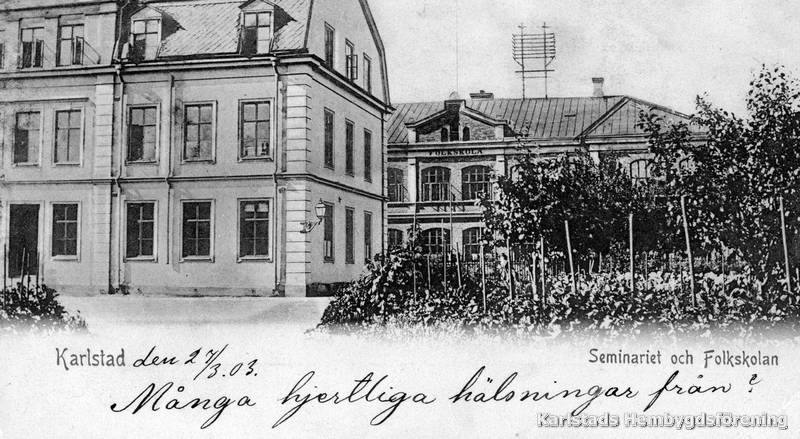 FOLKSKOLA
Karlstad den 27/3.03.
Seminariet och Folkskolan
Många hjertliga hälsningar från?
Karlstads Hembygdsförening